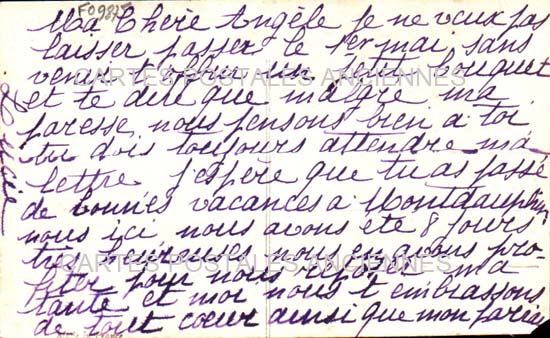 F09825
Ma Chère Angèle je ne veux pas
laisser passer le 1er mai sans
venir t'offrir un petit bouquet
CARTES POSTALES ANCIENNES
et te dire que malgré ma
paresse nous pensons bien a toi
tu dois toujours attendre ma
lettre j'espère que tu as passé
de bonnes vacances a Montdauphin
nous ici nous avons été 8 jours
très heureuses nous en avons pro-
CARTES POSTALES ANCIENNES
fiter pour nous reposer ma
tante et moi nous t'embrassons
de tout coeur ainsi que mon parrain